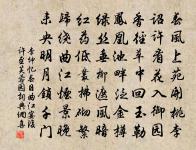 春風上苑開桃李
詔許看花入御園
香徑草中回玉勒
鳳凰池畔泛金樽
綠絲垂柳遮風暗
紅藥低叢拂砌繁
歸繞曲江煙景晚
未央明月鎖千門
李紳憶春日曲江宴後
許至芙蓉園